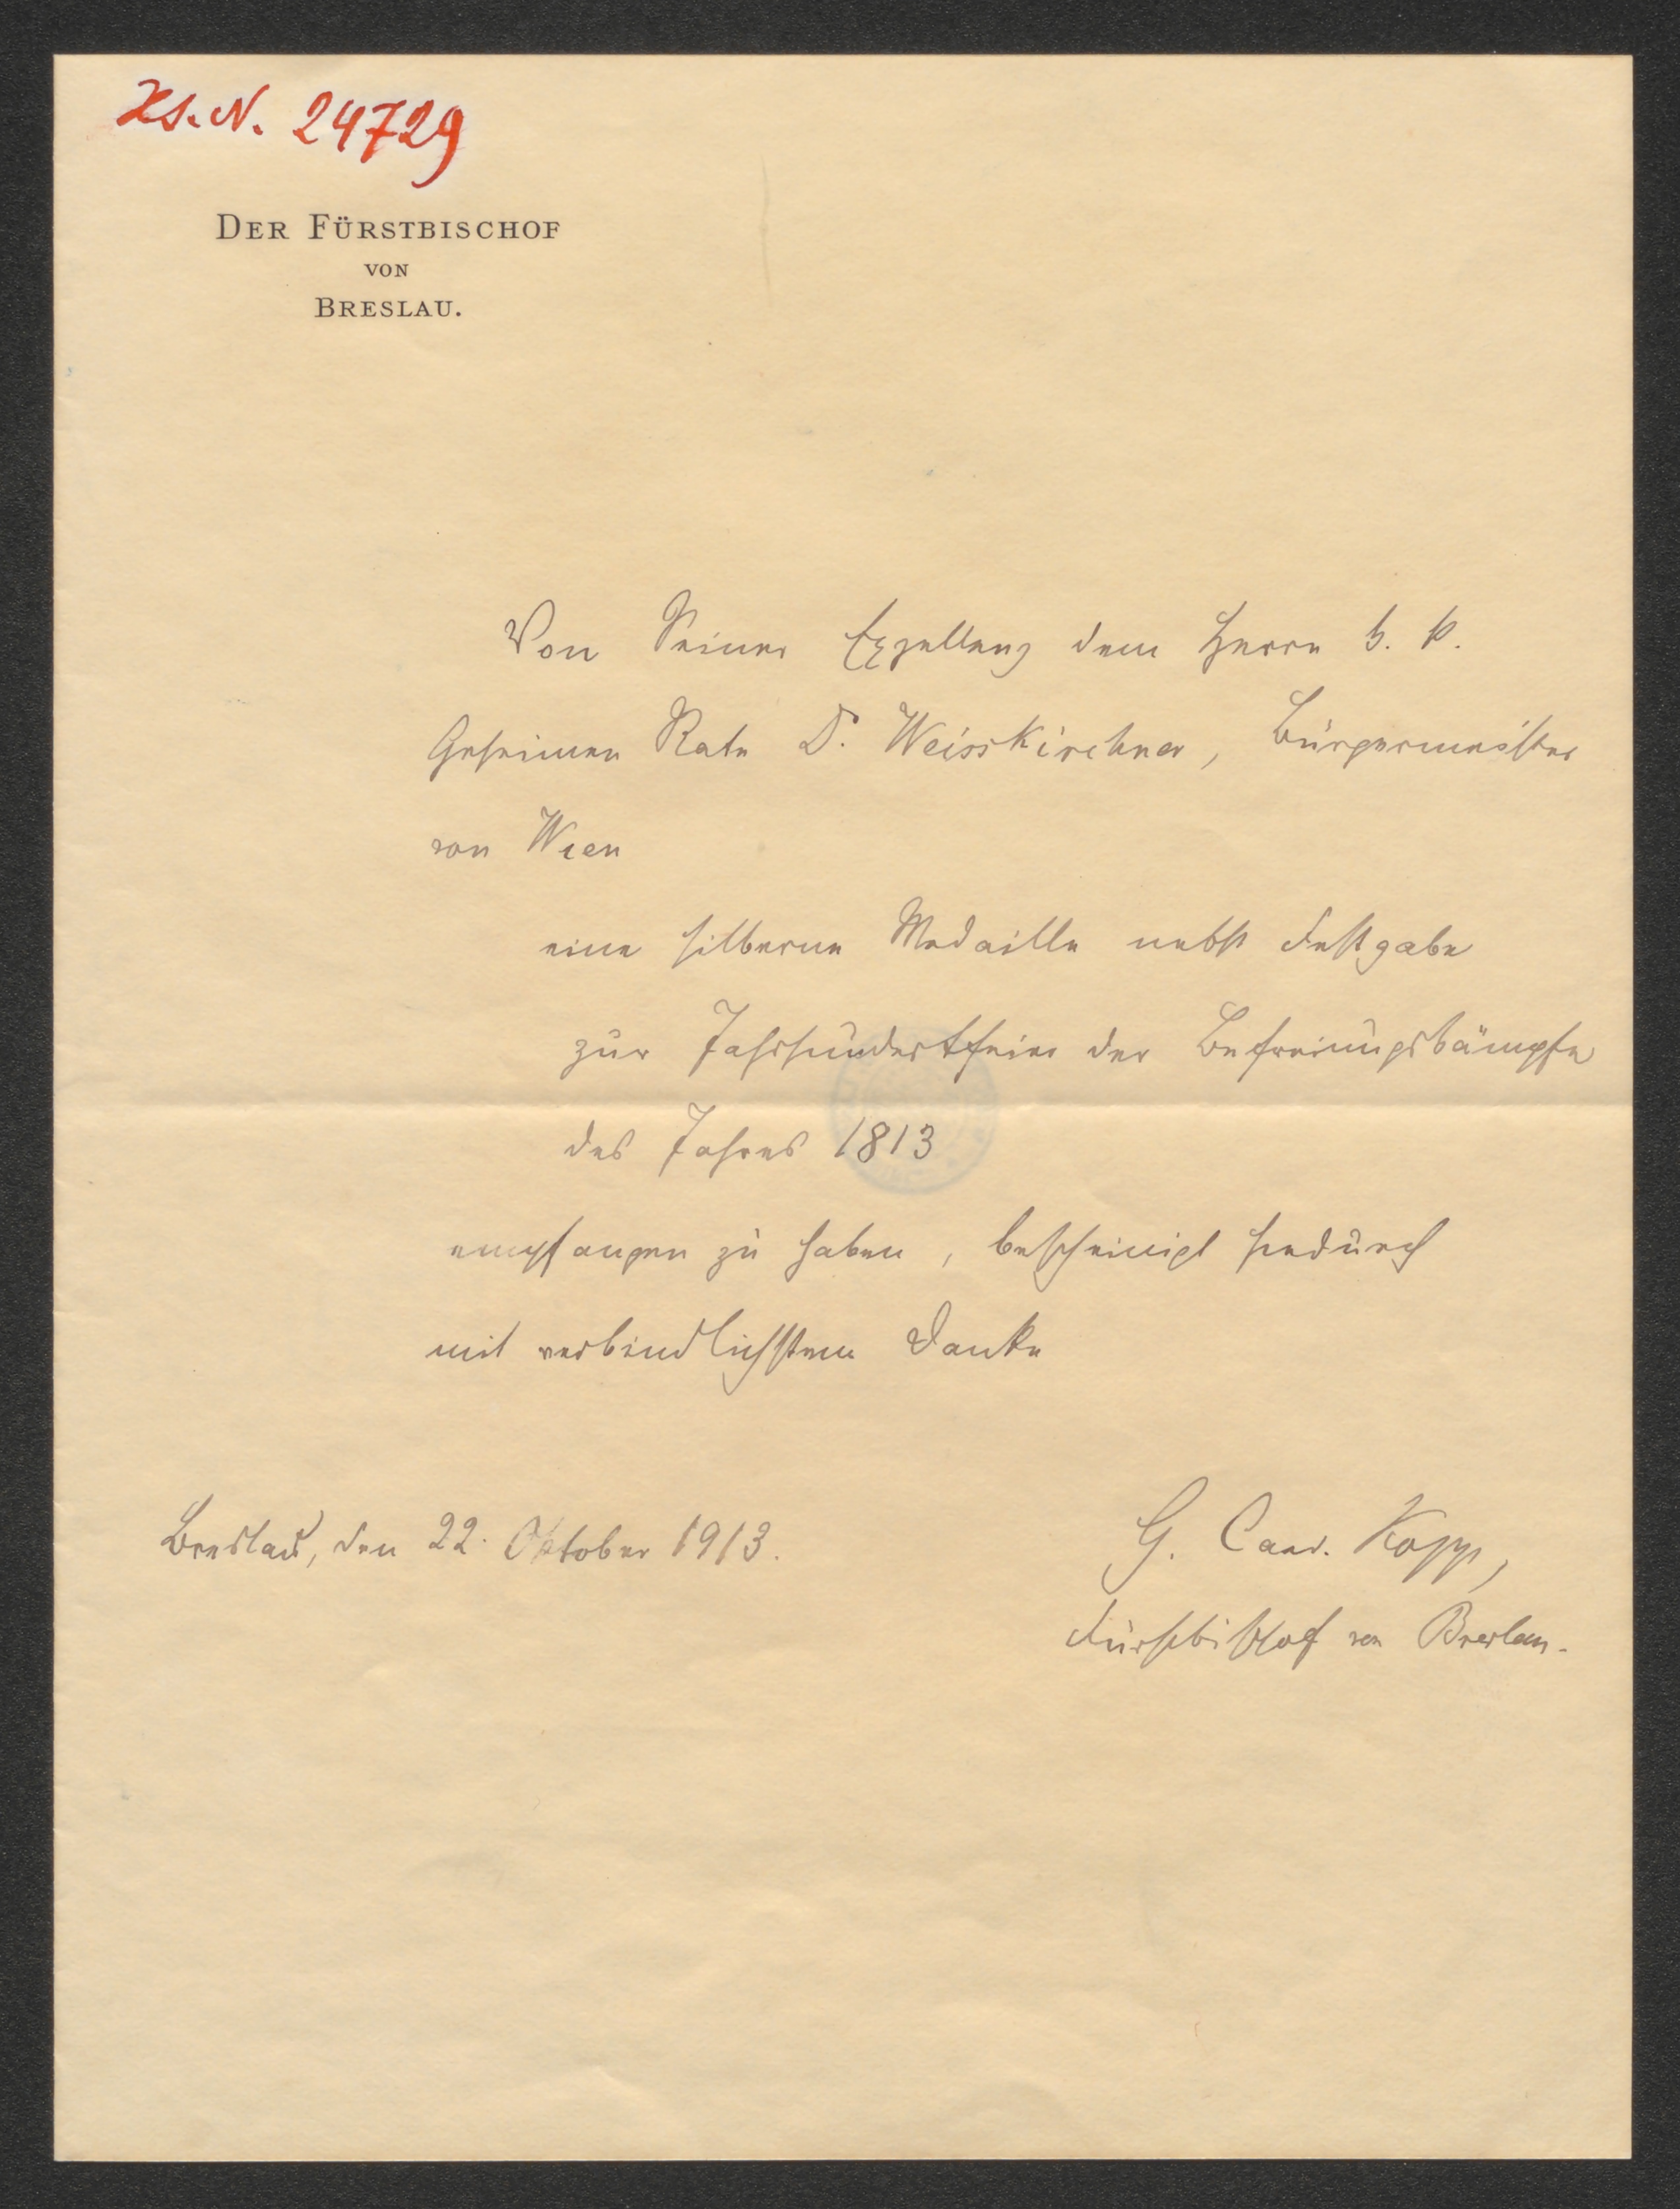 Hs. N. 24729
DER FÜRSTBISCHOF
VON
BRESLAU.
Von Seiner Exzellenz dem Herrn k. k.
Geheimen Rate Dr. Weisskirchner, Bürgermeister
von Wien
eine silberne Medaille nebst Festgabe
zur Jahrhundertfeier der Befreiungskämpfe
des Jahres 1813
empfangen zu haben, bescheinigt hiedurch
mit verbindlichstem Danke
Breslau, den 22. Oktober 1913.
G. Card. Kopp,
Fürstbischof von Breslau.